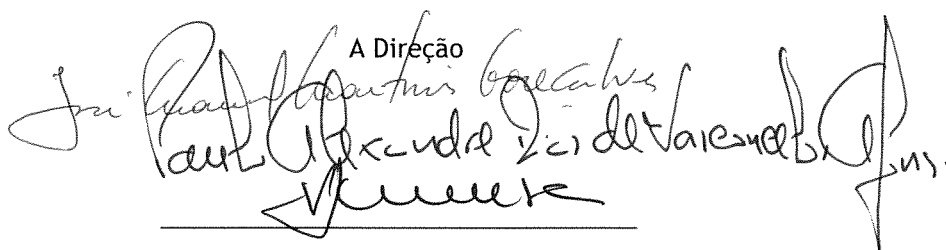 A Direção
José Manuel Martins Gonçalves
Paulo Alexandre Dias de Vasconcelos Afonso